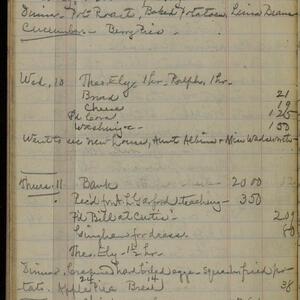 Dinner - Pot Roast, Baked Potatoes, Lima Beans
Cucumber - Berry Pies
Wed, 10 Thos. Ely - 1 hr. Ralph, 1 hr.
Bread 21
Cheese 19
Pd Cora 125
Washing 50
Went to see new houses, Aunt Albina + Min Wadsworth
Thurs. 11 Bank 20 00
Rec'd for A.L. Gaford teaching - 3 50
Pd Bill at Curtis' 2 09
Gingham for dress. 80
Thos. Ely - 1/2 hr.
Dinner, hard boiled eggs - squash, fried po-
tatoes. Apple Pie Bread 38